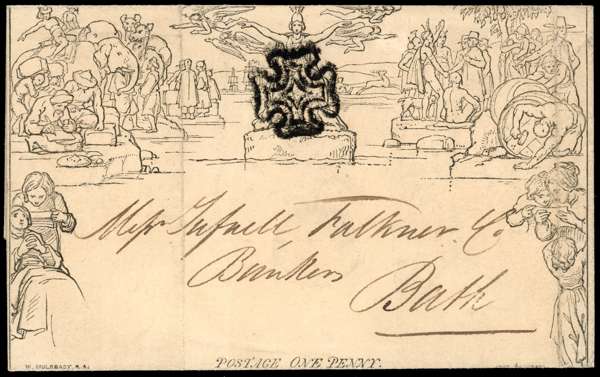 Messrs Tufnell Falkner Co.
Bankers
Bath
POSTAGE ONE PENNY.
W. MULREADY, R.A.